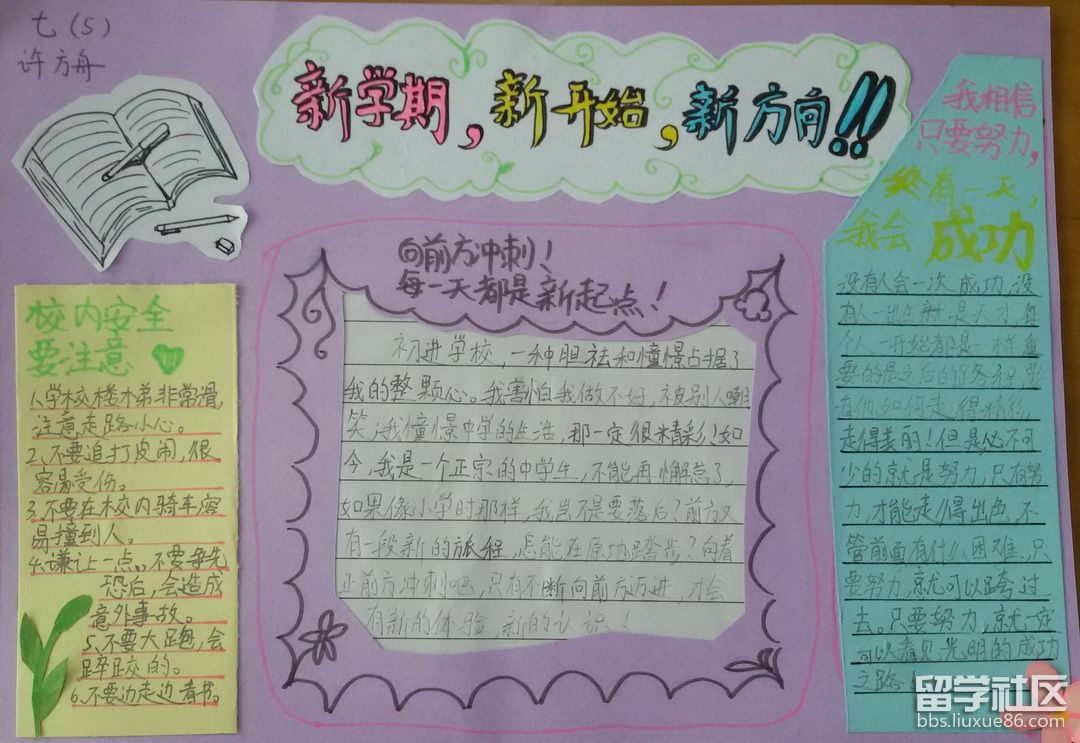 七(5)
许方舟
新学期,新开始,新方向!!
校内安全
要注意
1、学校楼梯非常滑,
注意走路小心。
2、不要追打皮闹,很
容易受伤。
3、不要在校内骑车容
易撞到人。
4、谦让一点,不要争先
恐后,会造成
意外事故。
5、不要大跑,会
踤跤的。
6、不要边走边看书。
向前方冲刺!
每一天都是新起点!
初进学校,一种胆祛和憧憬占据了
我的整颗心。我害怕我做不好,被别人嘲
笑;我憧憬中学的生活,那一定很精彩!如
今,我是一个正宗的中学生,不能再懈怠了,
如果像小学时那样,我岂不是要落后?前方又
有一段新的旅程,怎能在原地踏步?向着
正前方冲刺吧,只有不断向前方迈进,才会
有新的体验,新的认识!
我相信
只要努力,
终有一天,
我会 成功
没有人会一次成功,没
有人一出生就是天才,每
个人一开始都是一样,重
要的是之后的
他如何走得精彩,
走得美丽!但是必不可
少的就是努力,只有努
力,才能走得出色,不
管前面有什么困难,只
要努力,就可以跨过
去。只要努力,就一定
可以看见光明的成功
之路
留学社区
bbs.liuxue86.com